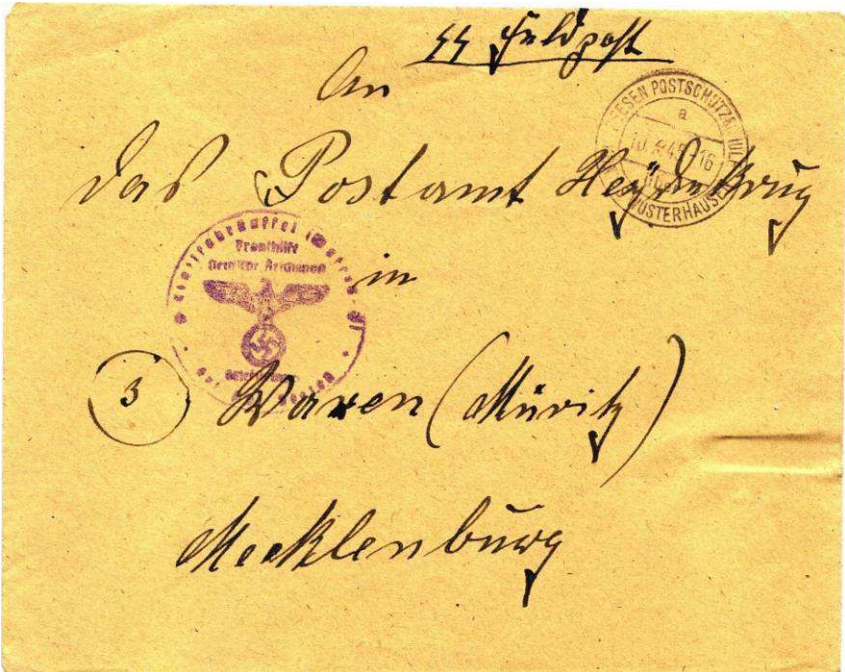 SS Feldpost
An
ZEESEN POSTSCHUTZSCHULE
a
16
WUSTERHAUSEN
das Postamt Heydekrug
Fronthilfe
Deutsche Reichspost
in
3 Waren (Müritz)
Mecklenburg